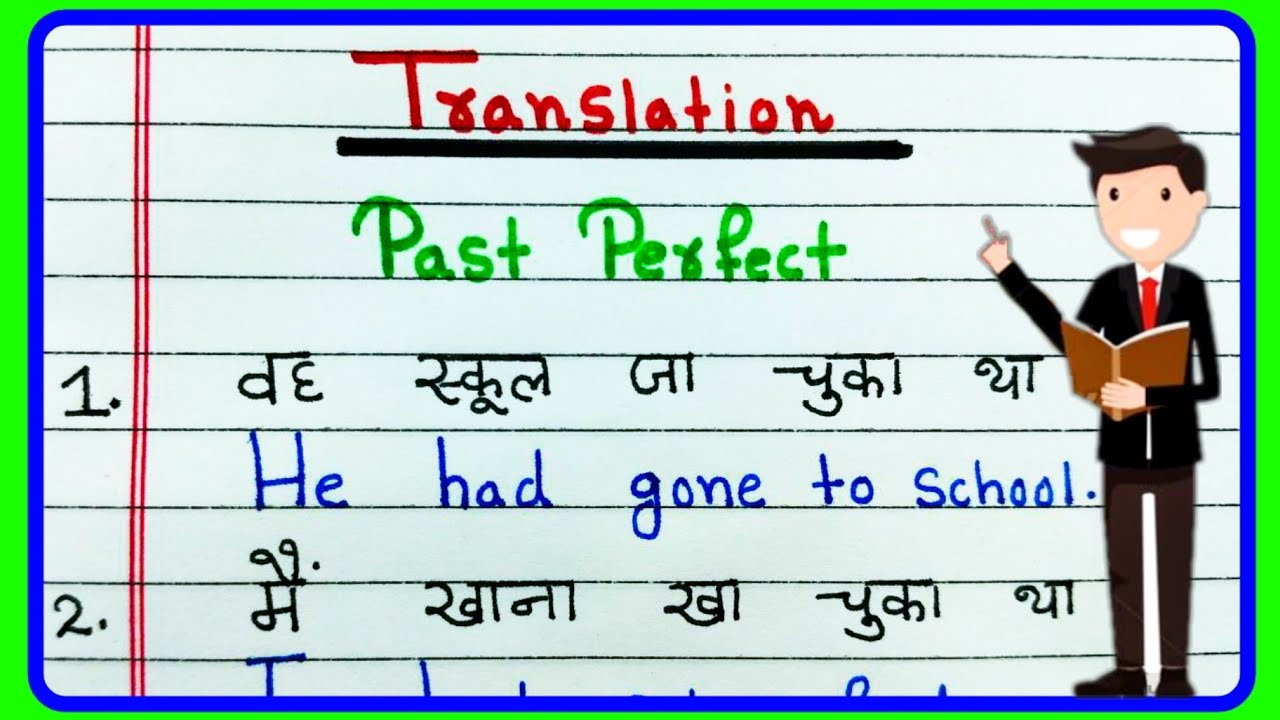 Translation
Past Perfect
1. वह स्कूल जा चुका था
He had gone to school.
2. मैं खाना खा चुका था
I